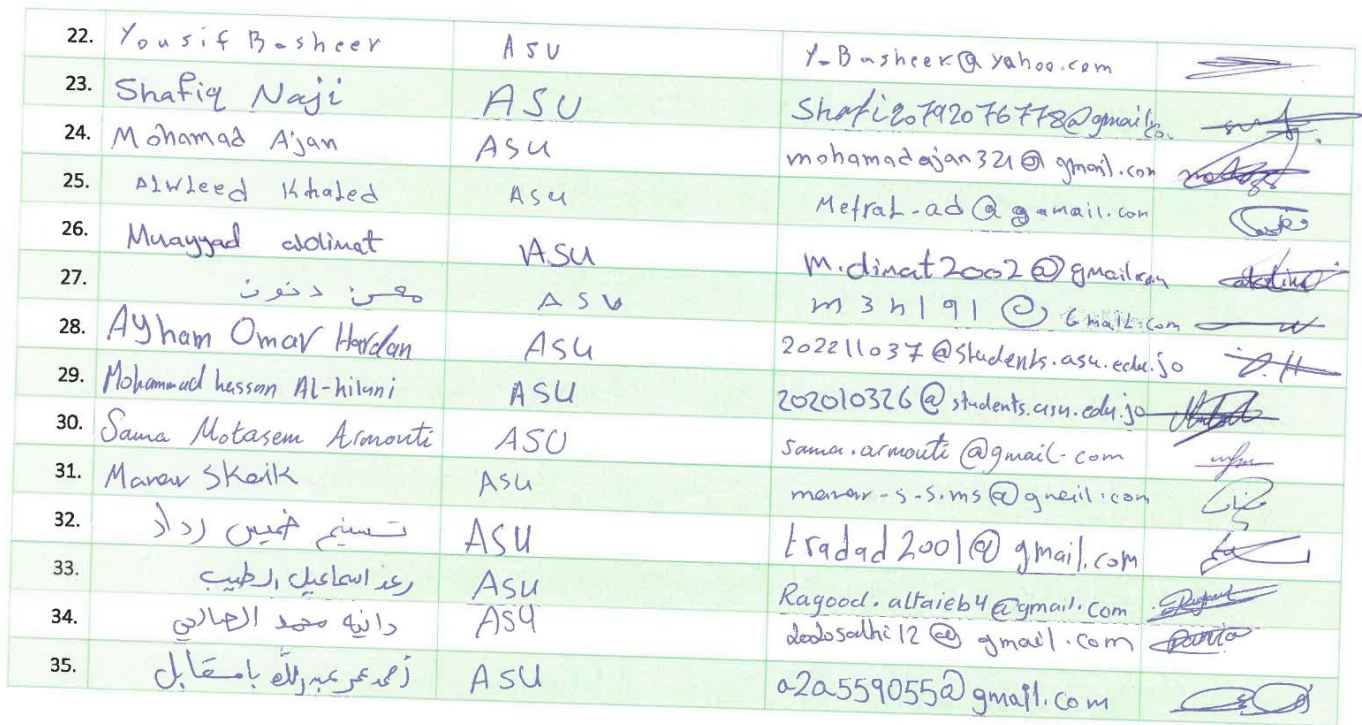 22. Yousif Basheer ASU Y_Basheer@yahoo.com
23. Shafiq Naji ASU Shafi20792076778@gmail.co.
24. Mohamad Ajan ASU mohamadajan321@gmail.com
25. Alwleed Khaled ASU Metral-ad@gamail.com
26. Muayyad dolimat ASU m.dimat2002@gmail.com
27. معن دنون ASU m3n191@Gmail.com
28. Ayham Omar Hardan ASU 202211037@students.asu.edu.jo
29. Mohammad hassan Al-hilani ASU 202010326@students.asu.edu.jo
30. Sama Motasem Armouti ASU sama.armouti@gmail.com
31. Manar Skaik ASU manar-s-s.ms@gmail.com
32. تسنيم خميس رداد ASU tradad2001@gmail.com
33. رغد اسماعيل الطيب ASU Ragood.altaieb4@gmail.com
34. دانيه محمد الصالحي ASU @gmail.com Dania
35. أحمد عمر عبدالله بامقابل ASU a2a559055@gmail.com